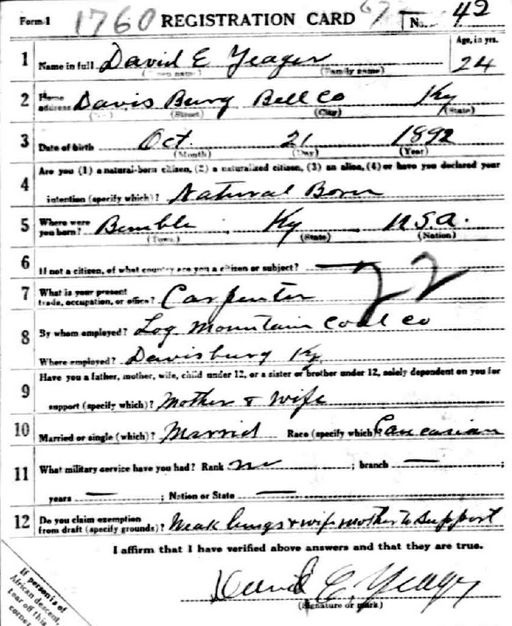 Form 1 1760 REGISTRATION CARD 67 No. 42
1 Name in full David E Yeager Age, in yrs. 24
(Given name) (Family name)
2 Home address Davis Burg Bell Co Ky
(No.) (Street) (City) (State)
3 Date of birth Oct. 21 1892
(Month) (Day) (Year)
4 Are you (1) a natural-born citizen, (2) a naturalized citizen, (3) an alien, (4) or have you declared your
intention (specify which)? Natural Born
5 Where were you born? Bimble Ky U.S.A.
(Town) (State) (Nation)
6 If not a citizen, of what country are you a citizen or subject? —
22
7 What is your present trade, occupation, or office? Carpenter
8 By whom employed? Log Mountain Coal Co
Where employed? Davisburg Ky
9 Have you a father, mother, wife, child under 12, or a sister or brother under 12, solely dependent on you for
support (specify which)? Mother & Wife
10 Married or single (which)? Married Race (specify which)? Caucasian
11 What military service have you had? Rank no ; branch —
years — ; Nation or State —
12 Do you claim exemption from draft (specify grounds)? Weak lungs & wife mother to support
I affirm that I have verified above answers and that they are true.
David E. Yeager
(Signature or mark)
If person is of
African descent,
tear off this
corner